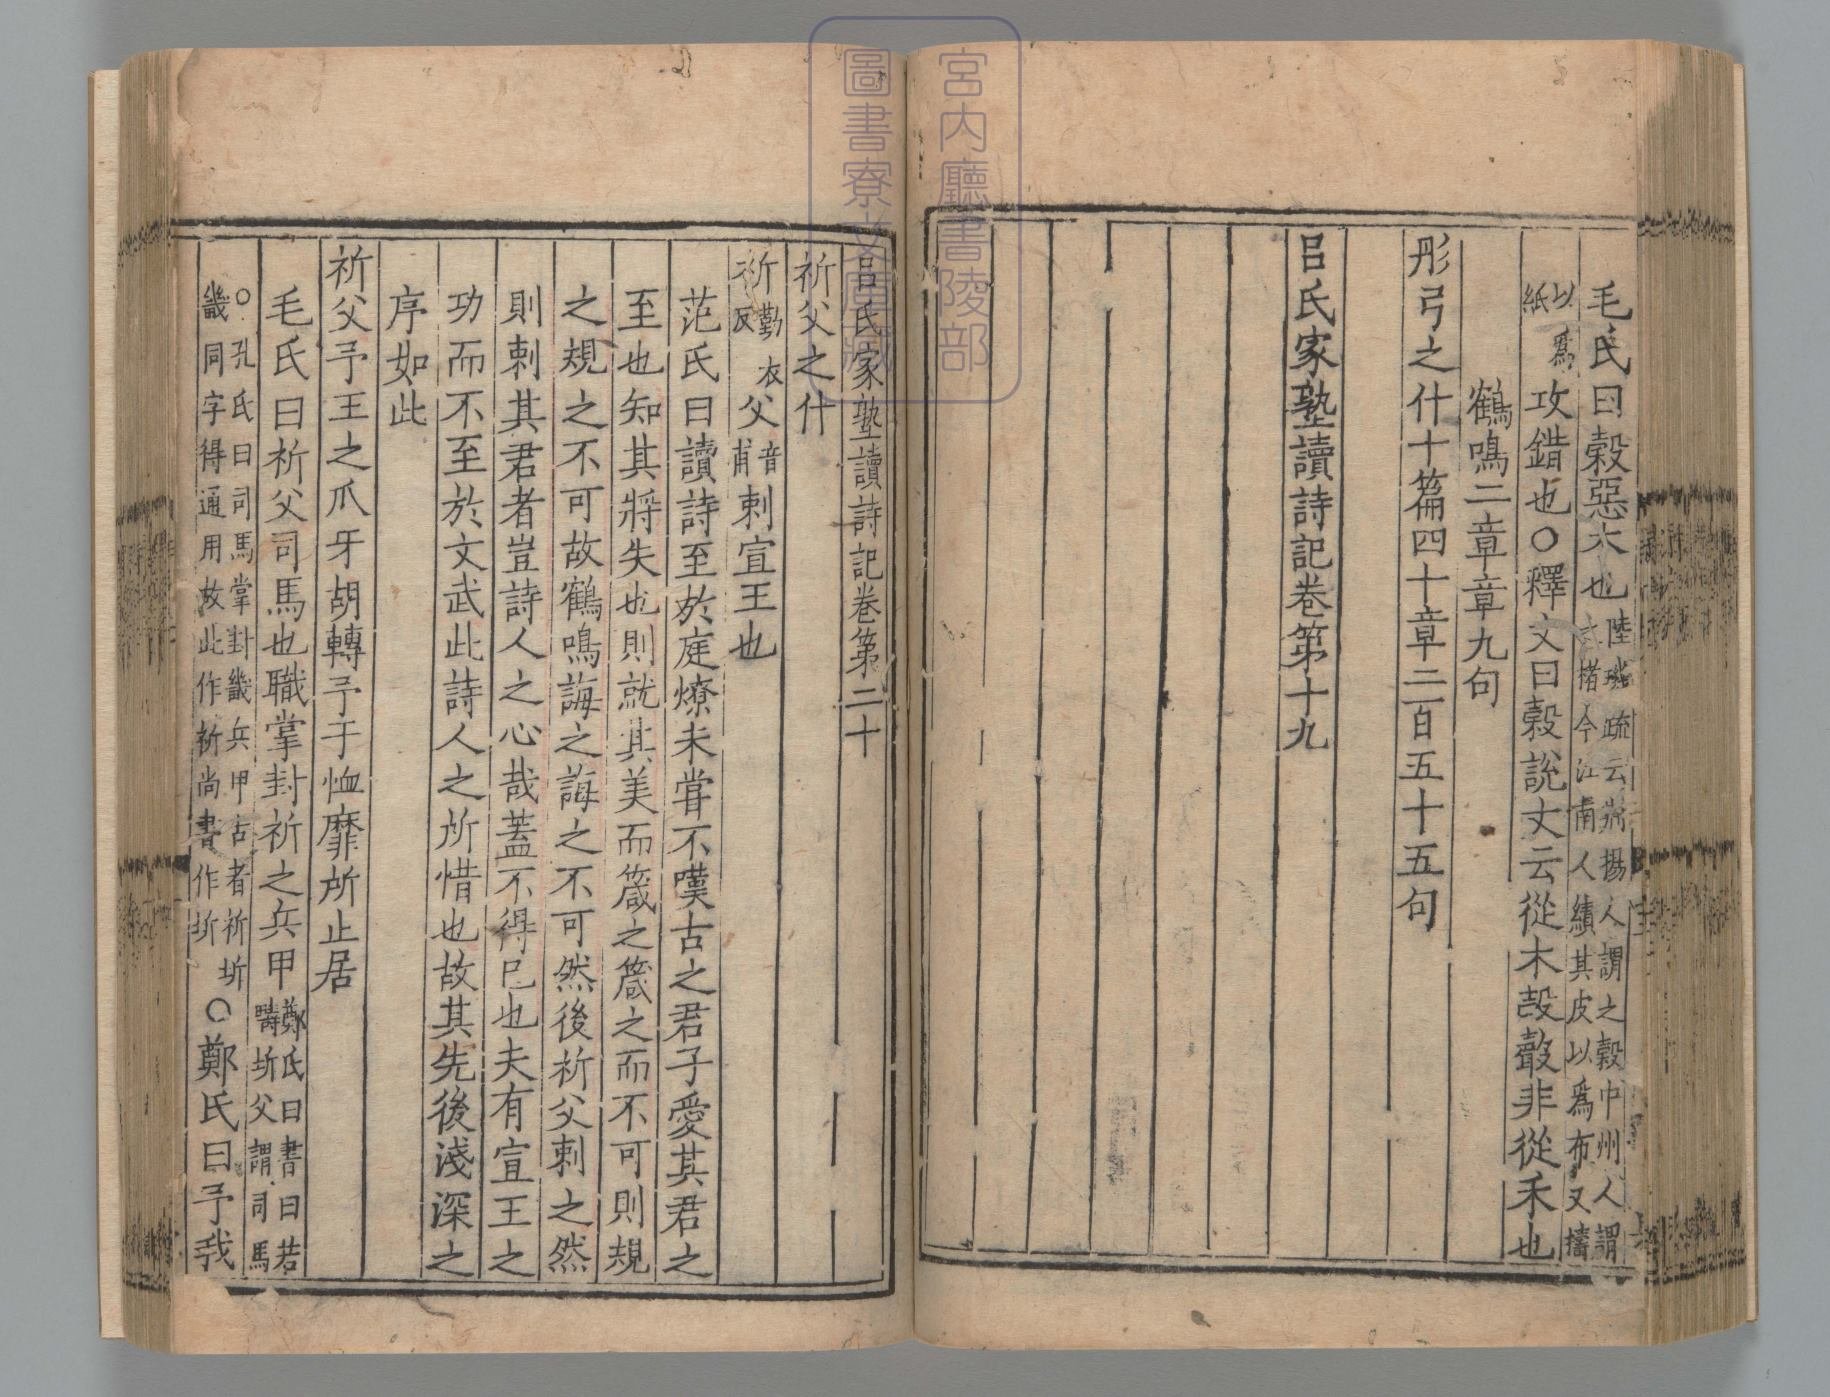 毛氏曰榖惡木也陸璣疏云幽揚人謂之榖中州人謂
之楮今江南人績其皮以爲布又擣
以爲
紙攻錯也○釋文曰榖說文云從木㱿聲非從禾也
鶴鳴二章章九句
彤弓之什十篇四十章二百五十五句
呂氏家塾讀詩記卷第十九
呂氏家塾讀詩記卷第二十
祈父之什
祈勤衣
反父音
甫刺宣王也
范氏曰讀詩至於庭燎未甞不嘆古之君子愛其君之
至也知其將失也則就其美而箴之箴之而不可則規
之規之不可故鶴鳴誨之誨之不可然後祈父刺之然
則刺其君者豈詩人之心哉蓋不得已也夫有宣王之
功而不至於文武此詩人之所惜也故其先後淺深之
序如此
祈父予王之爪牙胡轉予于恤靡所止居
毛氏曰祈父司馬也職掌封祈之兵甲鄭氏曰書曰若
疇圻父謂司馬
○孔氏曰司馬掌封畿兵甲古者祈圻
畿同字得通用故此作祈尚書作圻○鄭氏曰予我
宮内廳書陵部
圖書寮文庫藏